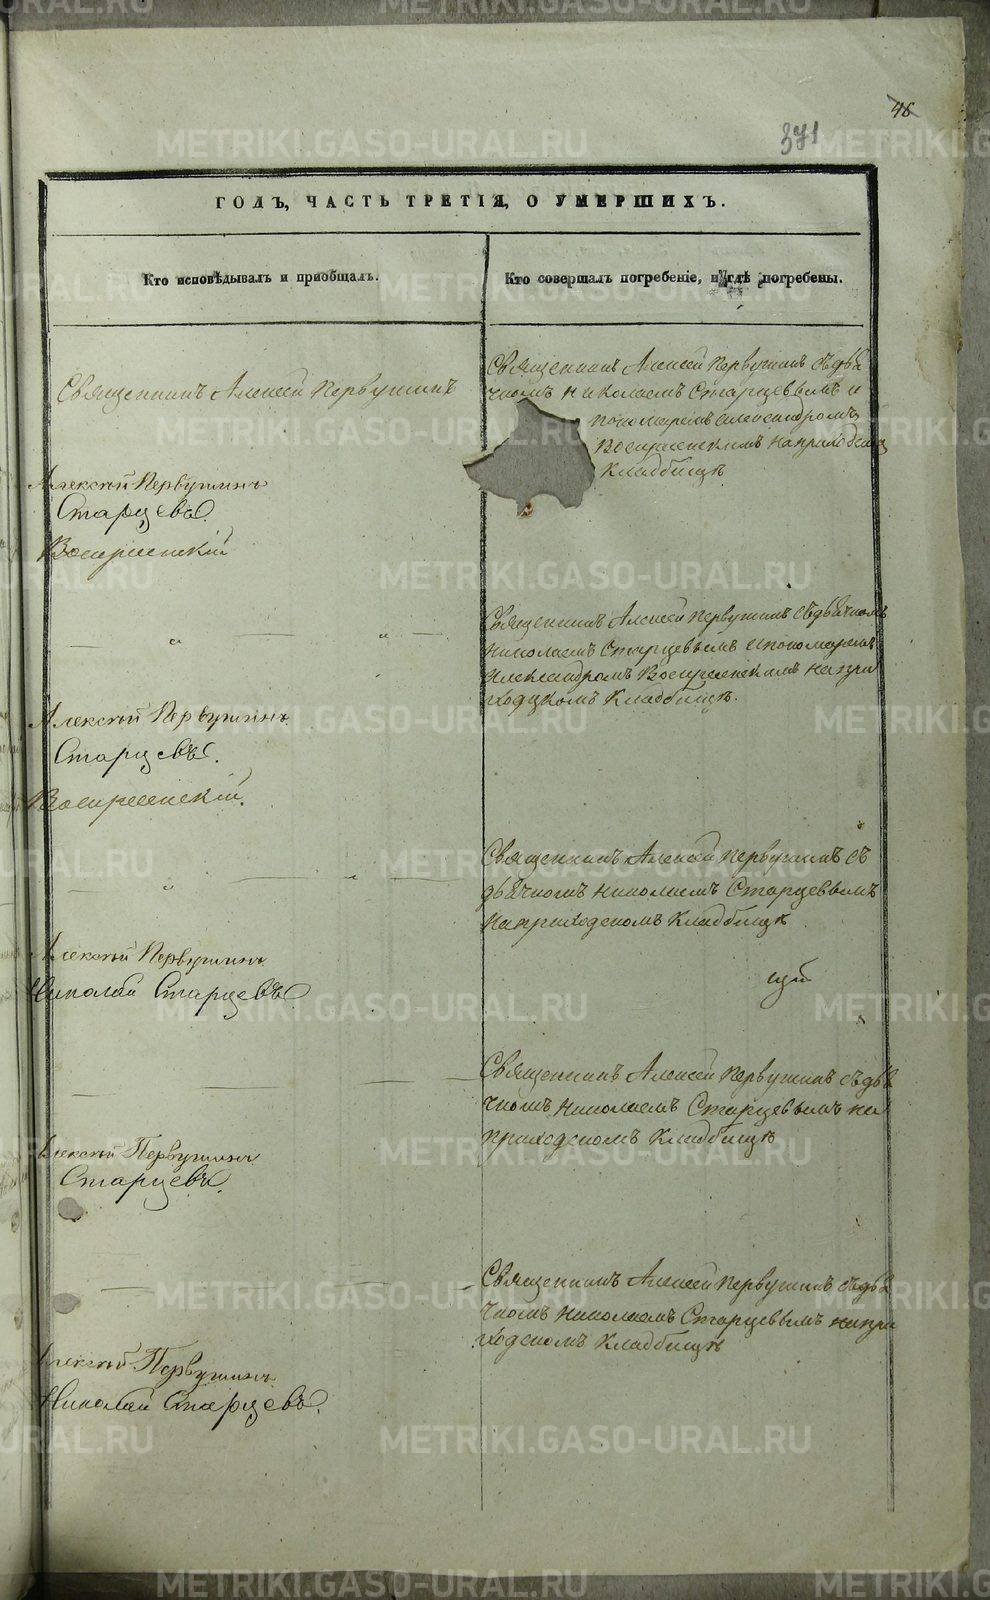 46
371
ГОДЪ, ЧАСТЬ ТРЕТІЯ, О УМЕРШИХЪ.
Кто исповѣдывалъ и пріобщалъ.
Кто совершалъ погребеніе, и гдѣ погребены.
Священникъ Алексѣй Первушинъ
Священникъ Алексѣй Первушинъ съ дья
чкомъ Николаемъ Старцевымъ и
пономаремъ Александромъ
Воскресенскимъ на приходскомъ
Кладбищѣ
Алексѣй Первушинъ
Старцевъ.
Воскресенскій
Священникъ Алексѣй Первушинъ съ дьячкомъ
Николаемъ Старцевымъ и пономаремъ
Александромъ Воскресенскимъ на при
ходскомъ Кладбищѣ.
Алексѣй Первушинъ
Старцевъ.
Воскресенскій.
Священникъ Алексѣй Первушинъ съ
дьячкомъ Николаемъ Старцевымъ
на приходскомъ Кладбищѣ
Алексѣй Первушинъ
Николай Старцевъ
Священникъ Алексѣй Первушинъ съ дья
чкомъ Николаемъ Старцевымъ на
приходскомъ Кладбищѣ
Алексѣй Первушинъ
Старцевъ.
Священникъ Алексѣй Первушинъ съ дья
чкомъ Николаемъ Старцевымъ на при
ходскомъ Кладбищѣ
Алексѣй Первушинъ
Николай Старцевъ.
METRIKI.GASO-URAL.RU